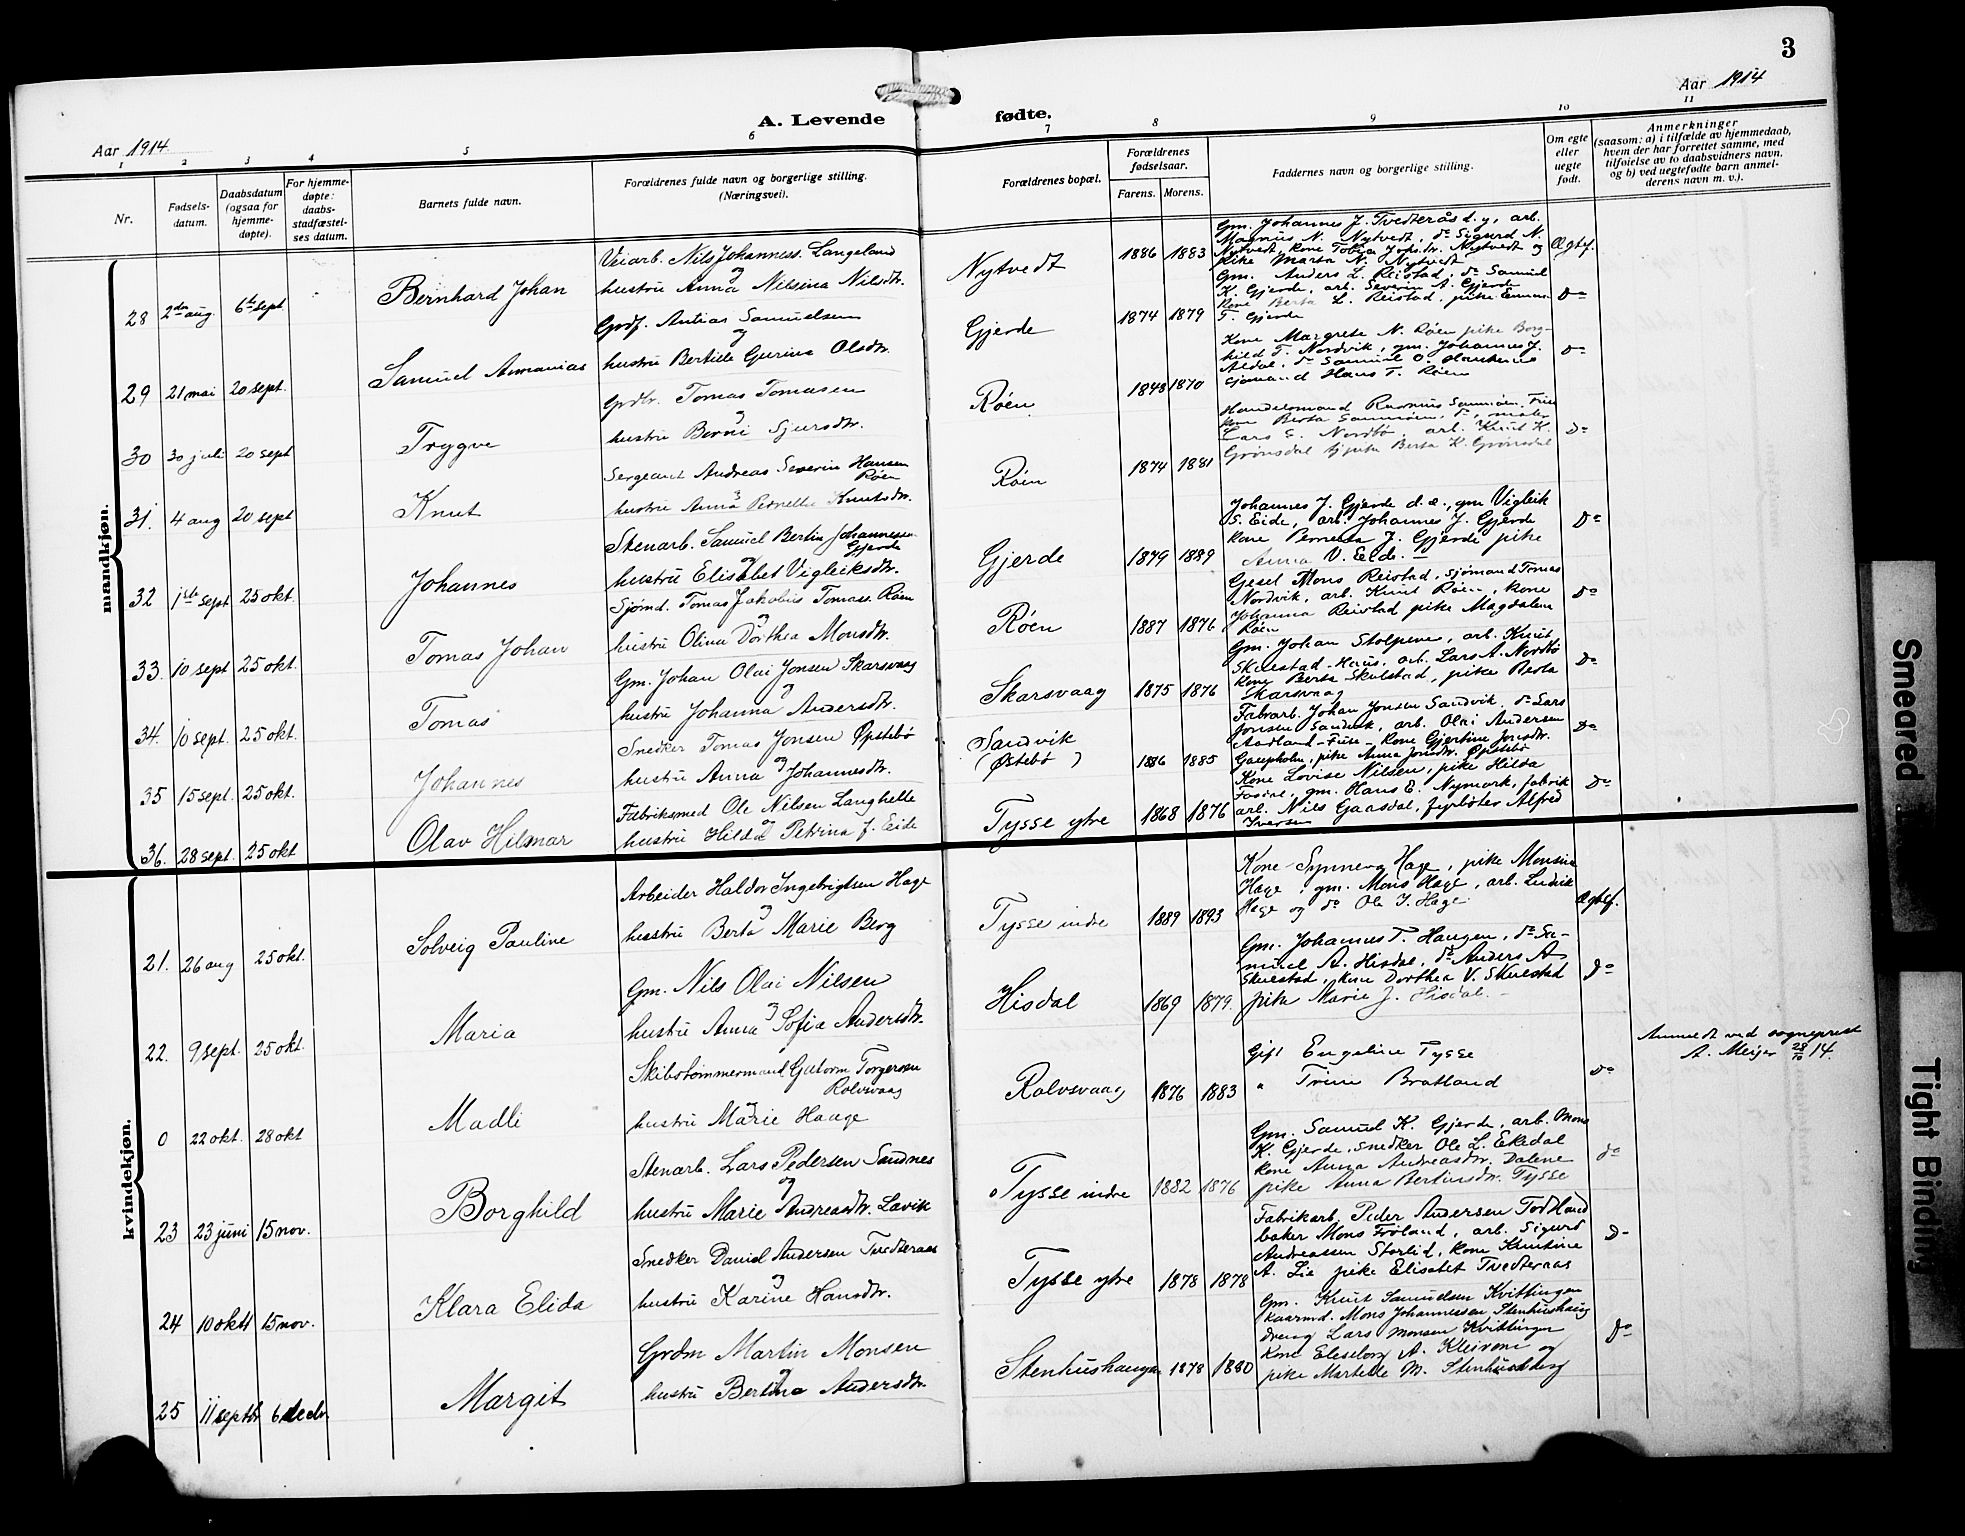 3
Aar 1914
Aar 1914
A. Levende fødte.
1 2 3 4 5 6 7 8 9 10 11
Nr.
Fødsels-
datum.
Daabsdatum
(ogsaa for
hjemme-
døpte).
For hjemme-
døpte:
daabs-
stadfæstel-
ses datum.
Barnets fulde navn.
Forældrenes fulde navn og borgerlige stilling.
(Næringsvei).
Forældrenes bopæl.
Forældrenes
fødselsaar.
Farens. Morens.
Faddernes navn og borgerlige stilling.
Om egte
eller
uegte
født.
Anmerkninger
(saasom: a) i tilfælde av hjemmedaab,
hvem der har forrettet samme, med
tilføielse av to daabsvidners navn.
og b) ved uegtefødte barn anmel-
derens navn m. v.).
mandkjøn.
28 2den aug. 6te sept
Bernhard Johan
Veiarb. Nils Johanness. Langeland
og
hustru Anna Nilsina Nilsdtr.
Nytvedt
1886 1883
Gm. Johannes J. Tvedterås d. y., arb.
Magnus N. Nytvedt, do Sigurd N.
Nytvedt, kone Tobia Johs.dtr. Nytvedt og
pike Marta N. Nytvedt
Ægtef.
29 21 mai 20 sept.
Samuel Annanias
Grdf. Antias Samuelsen
og
hustru Bertille Gurina Olsdtr.
Gjerde
1874 1879
Gm. Anders L. Reistad, do Samuel
K. Gjerde, arb. Severin A. Gjerde
kone Berta L. Reistad, pike Emma
T. Gjerde
Do
30 30 juli 20 sept
Trygve
Grdbr. Tomas Tomasen
og
hustru Berni Sjursdtr.
Røen
1848 1870
Kone Margrete N. Røen pike Borg-
hild T. Nordvik, gm. Johannes J.
Aldal, do Samuel O.
sjømand Hans T. Røen
Do
31. 4 aug 20 sept
Knut
Sergeant Andreas Severin Hansen
Røen
og
hustru Anna Pernille Knutsdtr.
Røen
1874 1881
Handelsmand Rasmus Samnøen, Fuse
kone Berta Samnøen, do, maler
Lars S. Nordbø, arb. Knut K.
Grønsdal pike Berta K. Grønsdal
Do
32 1ste sept 25 okt.
Johannes
Stenarb. Samuel Bertin Johannessen
Gjerde
og
hustru Elisabet Vigleiksdtr.
Gjerde
1879 1889
Johannes J. Gjerde d. æ., gm Vigleik
S. Eide, arb. Johannes J. Gjerde
kone Pernella J. Gjerde pike
Anna V. Eide. —
Do
33. 10 sept 25 okt.
Tomas Johan
Sjømd. Tomas Jakobus Tomass. Røen
og
hustru Olina Dorthea Monsdtr.
Røen
1887 1876
Gesel Mons Reistad, sjømand Tomas
Nordvik, arb. Knut Røen, kone
Johanna Reistad pike Magdalena
Røen
Do
34. 10 sept. 25 okt.
Tomas
Gm. Johan Olai Jonsen Skarsvaag
og
hustru Johanna Andersdtr.
Skarsvaag
1875 1876
Gm. Johan Stolpene, arb. Knut
Skulestad - Haus, arb. Lars A. Nordbø
kone Berta Skulstad, pike Berta
Skarsvaag
Do
35 15 sept. 25 okt.
Johannes
Snedker Tomas Jonsen Øpstebø
og
hustru Anna Johannesdtr.
Sandvik
(Østebø)
1886 1885
Fabrarb. Johan Jonsen Sandvik, do Lars
Jonsen Sandvik, arb. Olai Andersen
Aadland - Fuse - kone Gjertine Jonsdtr.
Gaupholm, pike Anna Jonsdtr. Øpstebø
Do
36. 28 sept. 25 okt
Olav Hilmar
Fabriksmed Ole Nilsen Langhelle
og
hustru Hilda Petrina f. Eide
Tysse ytre
1868 1876
Kone Lovise Nilsen, pike Hilda
gm. Hans E. Nymark, fabrik
arb. Nils Gaasdal, fyrbøter Alfred
Iversen
Do
kvindekjøn.
21. 26 aug 25 okt.
Solveig Pauline
Arbeider Haldor Ingebrigtsen Hage
og
hustru Berta Marie Berg
Tysse indre
1889 1893
Kone Synneva Hage, pike Monsina
Hage, gm. Mons Hage, arb. Ludvik
Hage og do Ole I. Hage
Ægtef.
22. 9 sept. 25 okt.
Maria
Gm. Nils Olai Nilsen
og
hustru Anna Sofia Andersdtr.
Hisdal
1869 1879.
Gm. Johannes T. Haugen, do Sa-
muel A. Hisdal, do Anders A.
Skulestad, kone Dorthea V. Skulestad
pike Marie J. Hisdal. —
Do
0 22 okt. 28 okt
Madli
Skibstømmermand Guttorm Torgersen
Rolvsvaag
og
hustru Marie Haage
Rolvsvaag
1876 1883
Gift Engeline Tysse
" Trine Bratland
Do
Anmeldt ved sogneprest
A. Meijer 28/10 14.
23 23 juni 15 nov.
Borghild
Stenarb. Lars Pedersen Sandnes
og
hustru Marie Andreasdtr. Lavik
Tysse indre
1882 1876
Gm. Samuel K. Gjerde, arb. Mons
K. Gjerde, snedker Ole L. Eikedal
kone Anna Andreasdtr. Dalene
pike Anna Bertinsdtr. Tysse
Do
24 10 okt 15 nov.
Klara Elida
Snedker Daniel Andersen Tvedteraas
og
hustru Karine Hansdtr.
Tysse ytre
1878 1878
Fabrikarb. Peder Andersen Todland
baker Mons Frøland, arb. Sigurd
Andreassen Storlid, kone Kristine
A. Lie pike Elisabet Tvedteraas
Do
25 11 septbr 6 decbr
Margit
Grdm Martin Monsen
og
hustru Bertine Andersdtr.
Stenhushaugen
1878 1880
Gm. Knut Samuelsen Kvittingen
kaarmd. Mons Johannessen Stenhushaug
dreng Lars Monsen Kvittingen
kone Eliseborg A. Kleivene og
pike Martelle M. Stenhusberg
Do
Smeared
Tight Binding